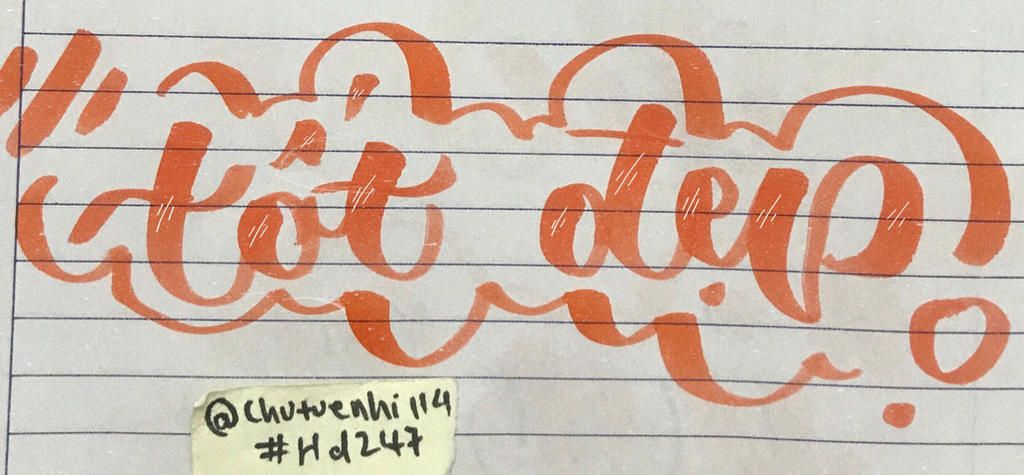 tốt đẹp
@chutuenhi114
#Hd247